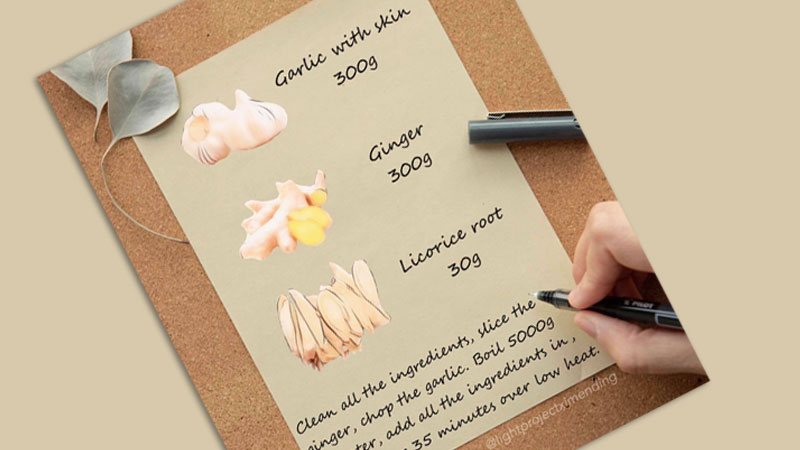 Garlic with skin
300g
Ginger
300g
Licorice root
30g
PILOT
Clean all the ingredients, slice the
ginger, chop the garlic. Boil 5000g
ter, add all the ingredients in ,
35 minutes over low heat.
@lightprojectxlmending